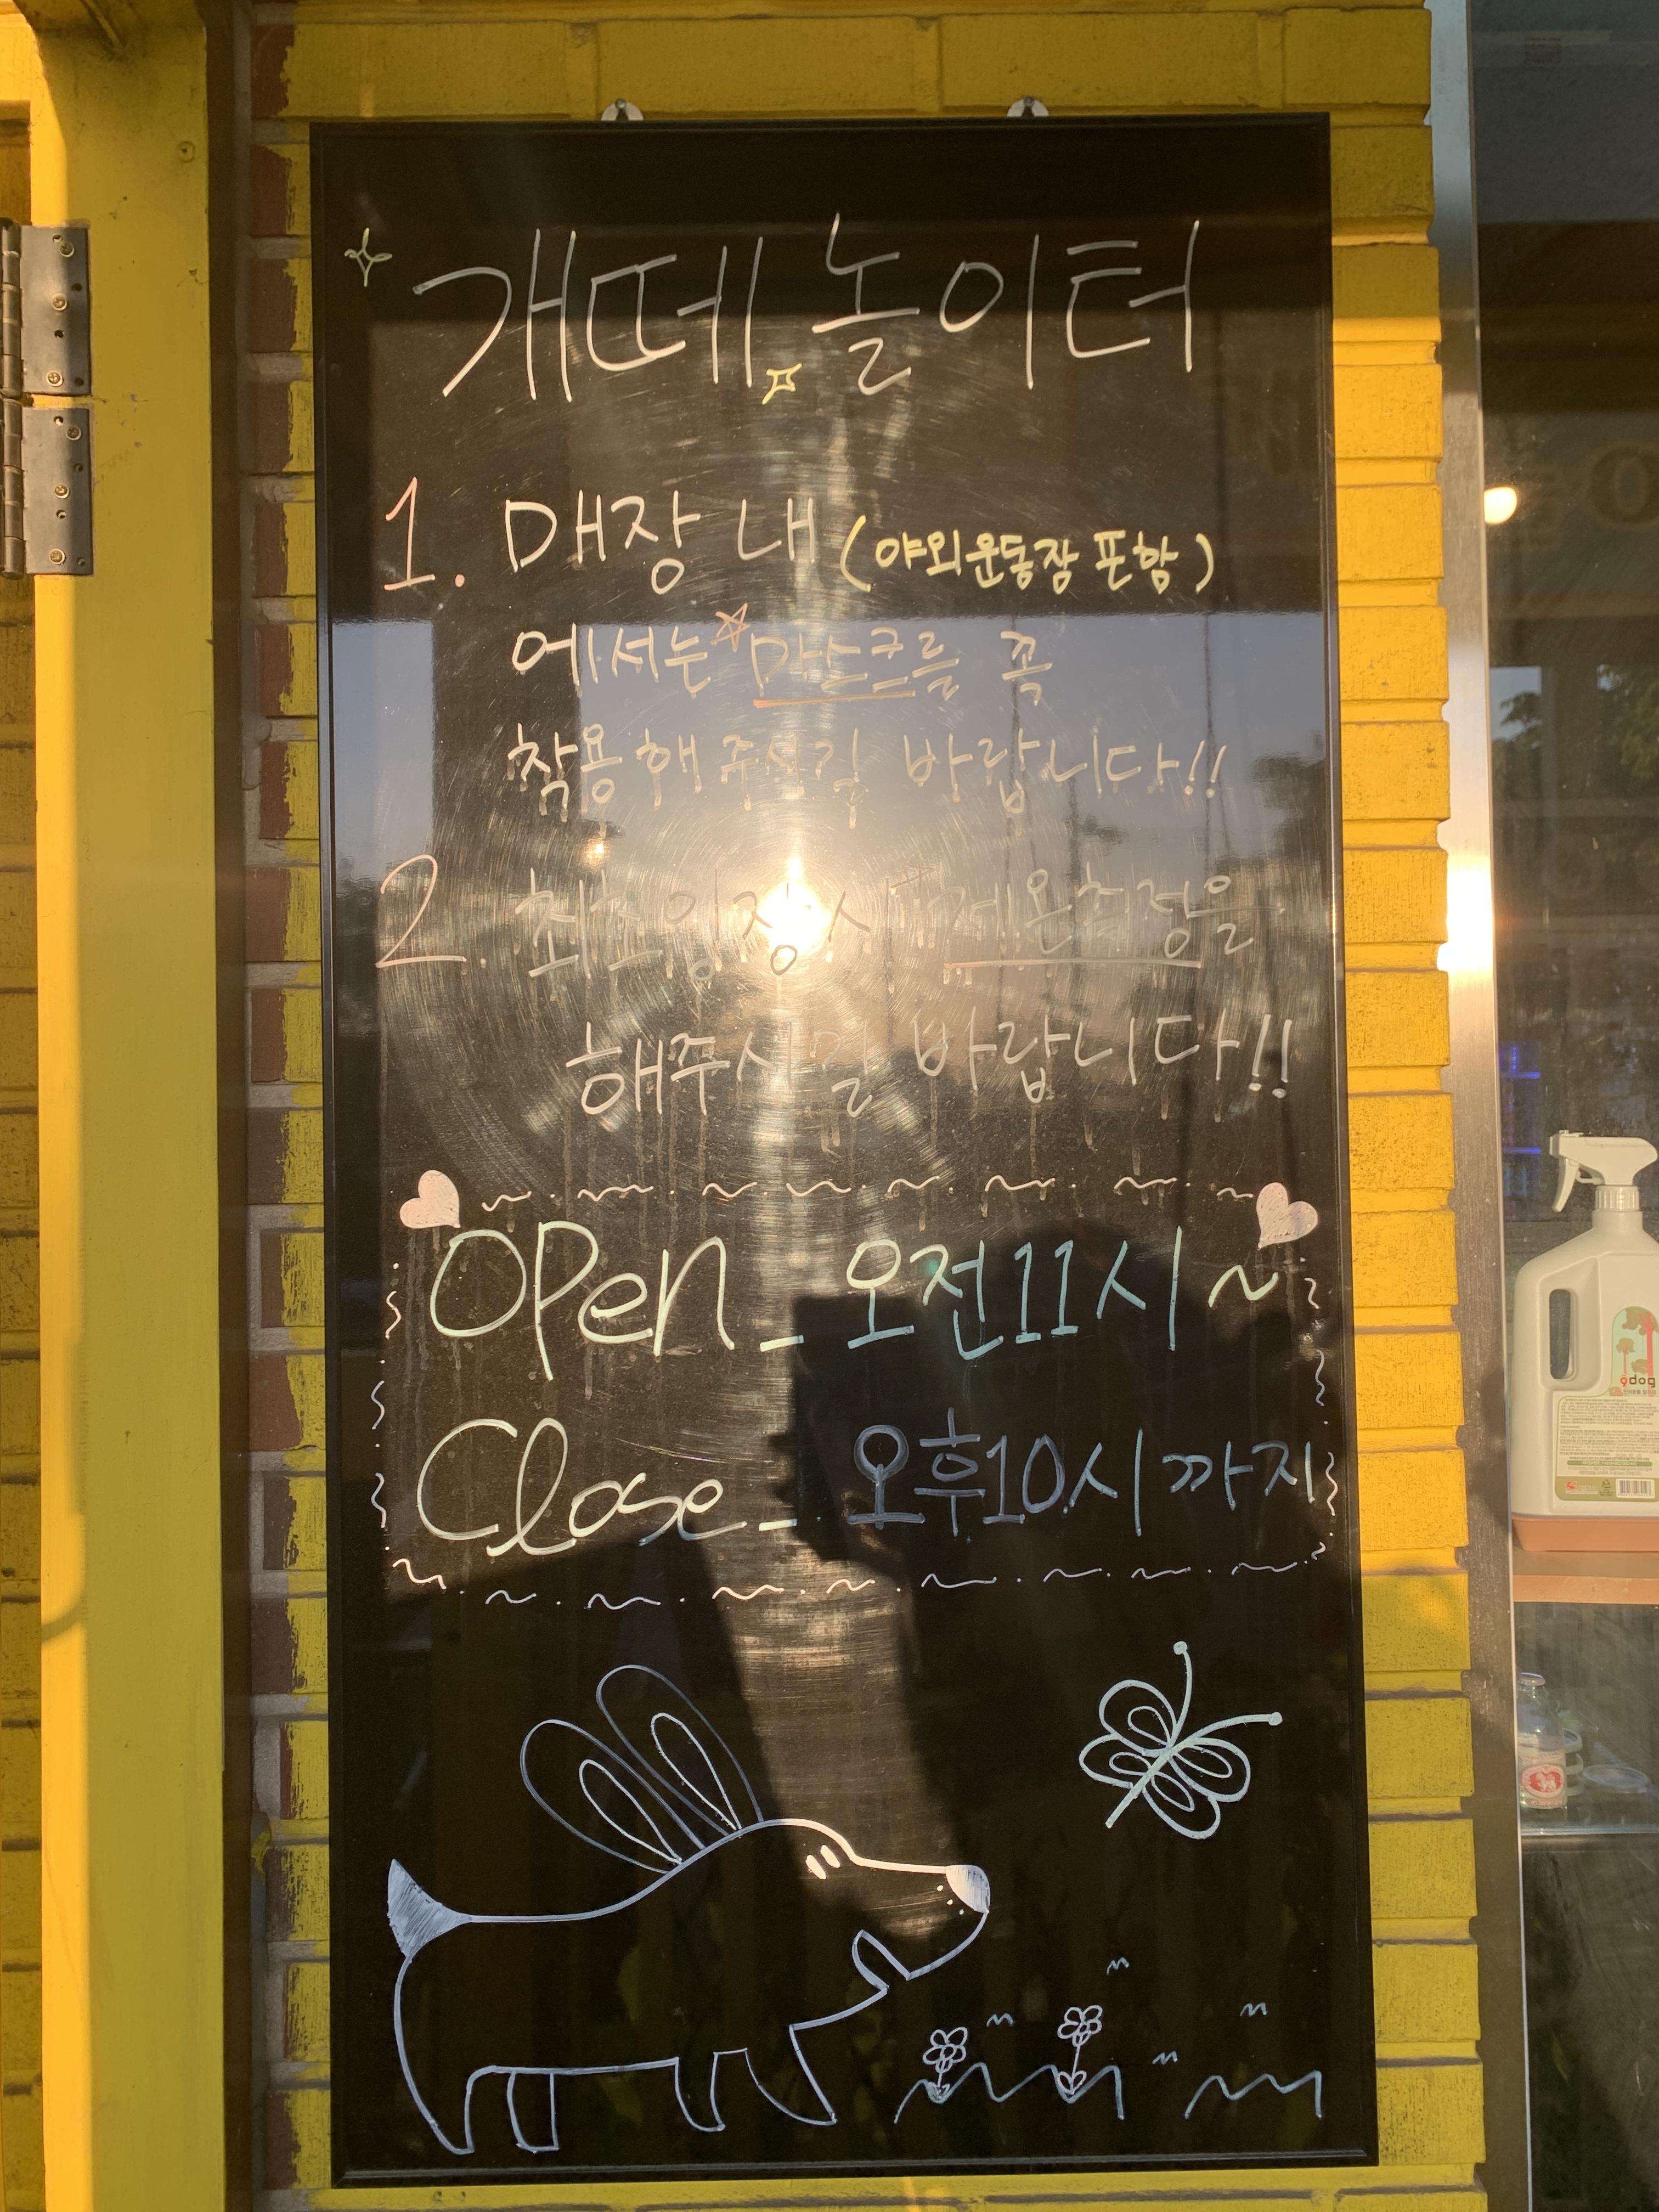 개떼놀이터
1. 매장 내 (야외운동장 포함)
에서는 마스크를 꼭
착용해 주시길 바랍니다!!
2. 최초 입장 시 체온측정을
해주시길 바랍니다!!
Open_오전11시~
Close_오후10시까지
dog